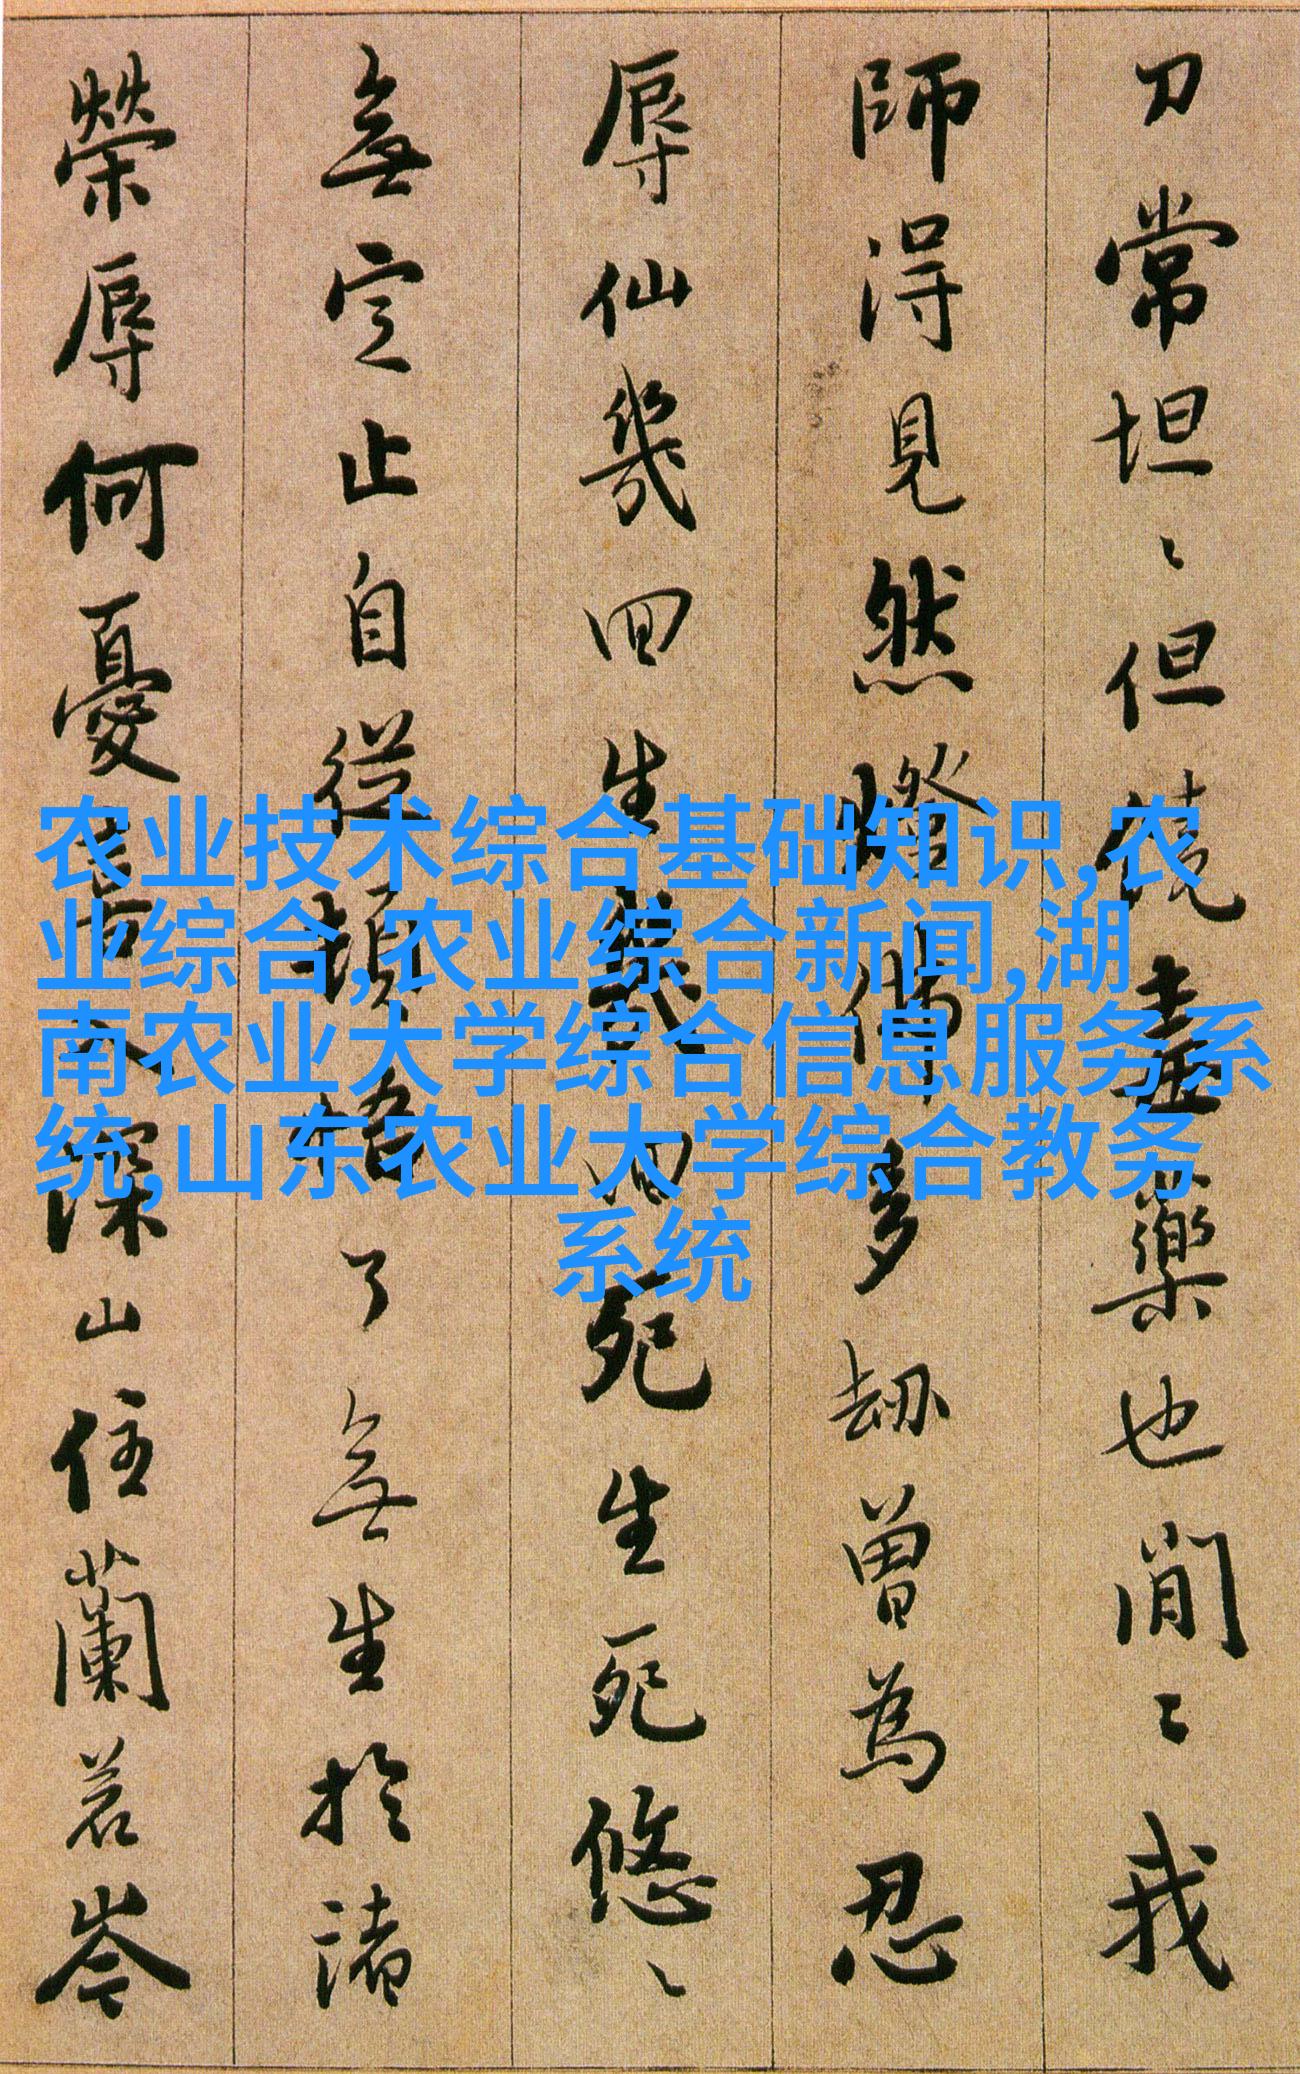 刀常坦〻但饒毒藥也閒〻我
師得見然燈佛多劫曾為忍
辱仙幾回生幾回死生死悠〻
無定止自從頓悟了無生於諸
榮辱何憂喜入深山住蘭若岑
农业技术综合基础知识,农
业综合,农业综合新闻,湖
南农业大学综合信息服务系
统,山东农业大学综合教务
系统